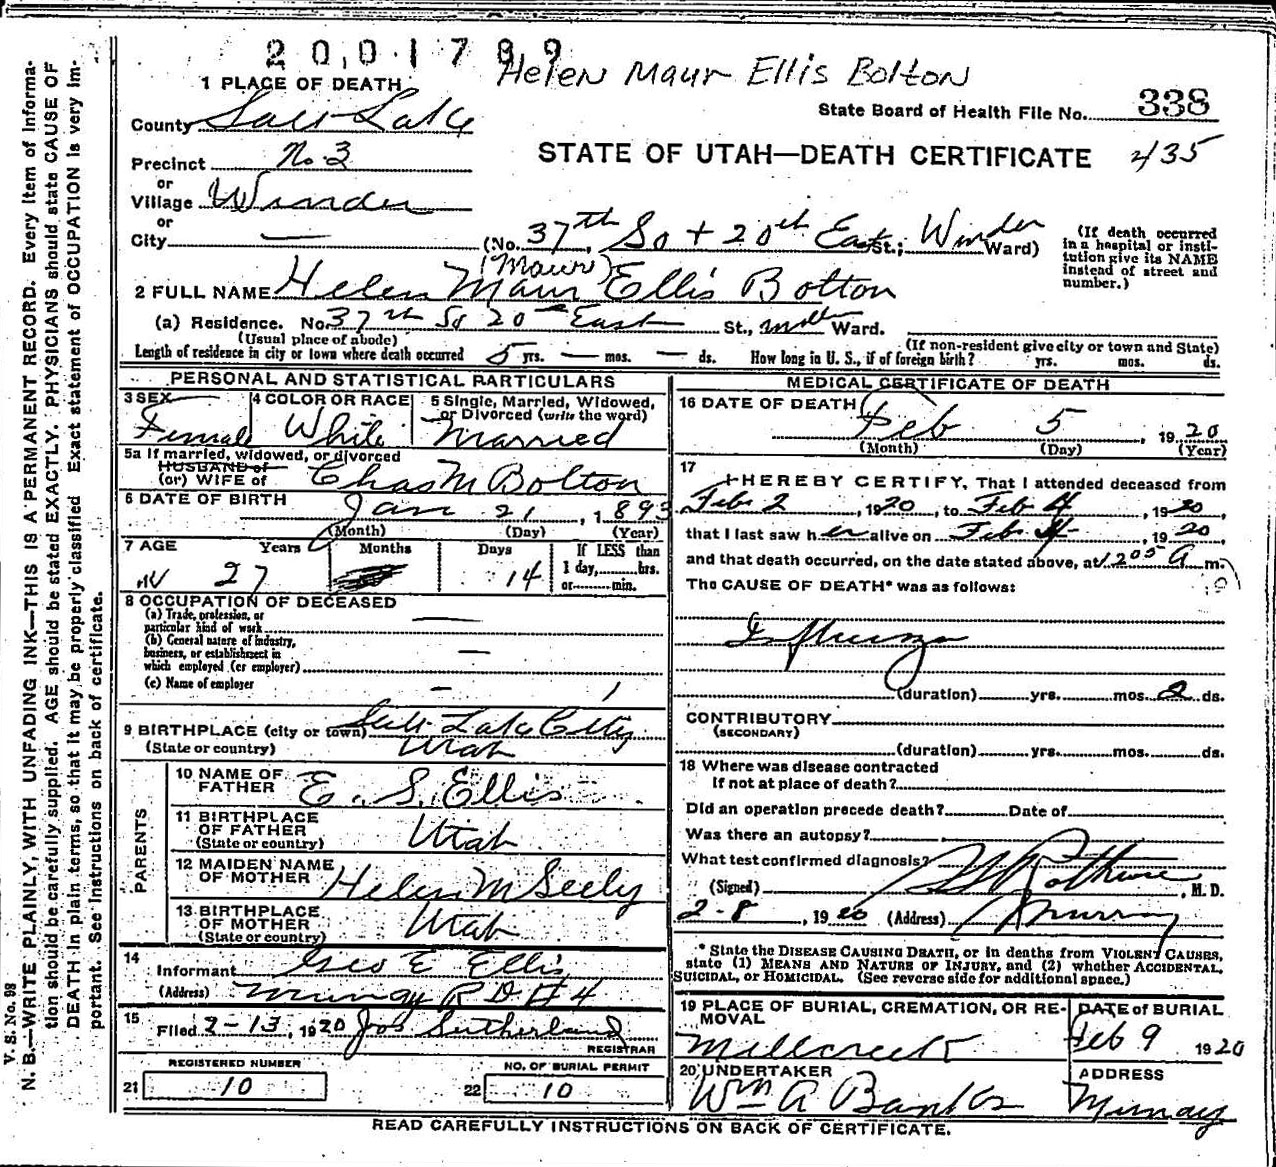 2001789
Helen Maur Ellis Bolton
1 PLACE OF DEATH
State Board of Health File No. 338
County Salt Lake
STATE OF UTAH—DEATH CERTIFICATE 435
Precinct No. 3
or
Village Winder
or
City —
(No. 37th So + 20th East St.; Winder Ward)
(If death occurred in a hospital or institution give its NAME instead of street and number.)
(Maur)
2 FULL NAME Helen Maur Ellis Bolton
(a) Residence. No. 37th So 20th East St., Ward.
(Usual place of abode)
(If non-resident give city or town and State)
Length of residence in city or town where death occurred 5 yrs. — mos. — ds. How long in U. S., if of foreign birth? yrs. mos. ds.
PERSONAL AND STATISTICAL PARTICULARS
3 SEX
Female
4 COLOR OR RACE
White
5 Single, Married, Widowed, or Divorced (write the word)
Married
5a If married, widowed, or divorced
HUSBAND of
(or) WIFE of Chas M Bolton
6 DATE OF BIRTH
Jan 21, 1893
(Month) (Day) (Year)
7 AGE Years Months Days If LESS than
27 14 1 day,......hrs.
or......min.
8 OCCUPATION OF DECEASED
(a) Trade, profession, or
particular kind of work —
(b) General nature of industry,
business, or establishment in
which employed (or employer) —
(c) Name of employer —
9 BIRTHPLACE (city or town) Salt Lake City
(State or country) Utah
PARENTS
10 NAME OF FATHER E. S. Ellis
11 BIRTHPLACE OF FATHER
(State or country) Utah
12 MAIDEN NAME OF MOTHER Helen M Seely
13 BIRTHPLACE OF MOTHER
(State or country) Utah
14
Informant Geo E Ellis
(Address) Murray R D # 4
15
Filed 2-13, 1920 Jos Sutherland
REGISTRAR
REGISTERED NUMBER
21 10
NO. OF BURIAL PERMIT
22 10
MEDICAL CERTIFICATE OF DEATH
16 DATE OF DEATH
Feb 5, 1920
(Month) (Day) (Year)
17
I HEREBY CERTIFY, That I attended deceased from
Feb 2, 1920, to Feb 4, 1920,
that I last saw her alive on Feb 4, 1920,
and that death occurred, on the date stated above, at 1205 A m.
The CAUSE OF DEATH* was as follows:
Influenza
(duration) yrs. mos. 2 ds.
CONTRIBUTORY
(SECONDARY)
(duration) yrs. mos. ds.
18 Where was disease contracted
If not at place of death?
Did an operation precede death? Date of
Was there an autopsy?
What test confirmed diagnosis?
(Signed) , M. D.
2-8, 1920 (Address) Murray
* State the DISEASE CAUSING DEATH, or in deaths from VIOLENT CAUSES,
state (1) MEANS AND NATURE OF INJURY, and (2) whether ACCIDENTAL,
SUICIDAL, or HOMICIDAL. (See reverse side for additional space.)
19 PLACE OF BURIAL, CREMATION, OR REMOVAL
Millcreek
DATE of BURIAL
Feb 9 1920
20 UNDERTAKER
Wm A Banks
ADDRESS
Murray
READ CAREFULLY INSTRUCTIONS ON BACK OF CERTIFICATE.
V. S. No. 98
N. B.—WRITE PLAINLY, WITH UNFADING INK—THIS IS A PERMANENT RECORD. Every item of information should be carefully supplied. AGE should be stated EXACTLY. PHYSICIANS should state CAUSE OF DEATH in plain terms, so that it may be properly classified. Exact statement of OCCUPATION is very important. See instructions on back of certificate.